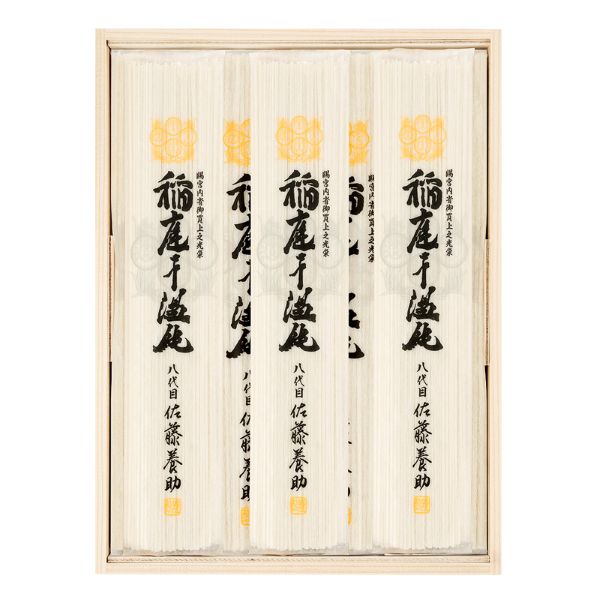 賜宮内省御買上之光栄
稲庭干温飩
八代目 佐藤養助
賜宮内省御買上之光栄
稲庭干温飩
八代目 佐藤養助
賜宮内省御買上之光栄
稲庭干温飩
八代目 佐藤養助